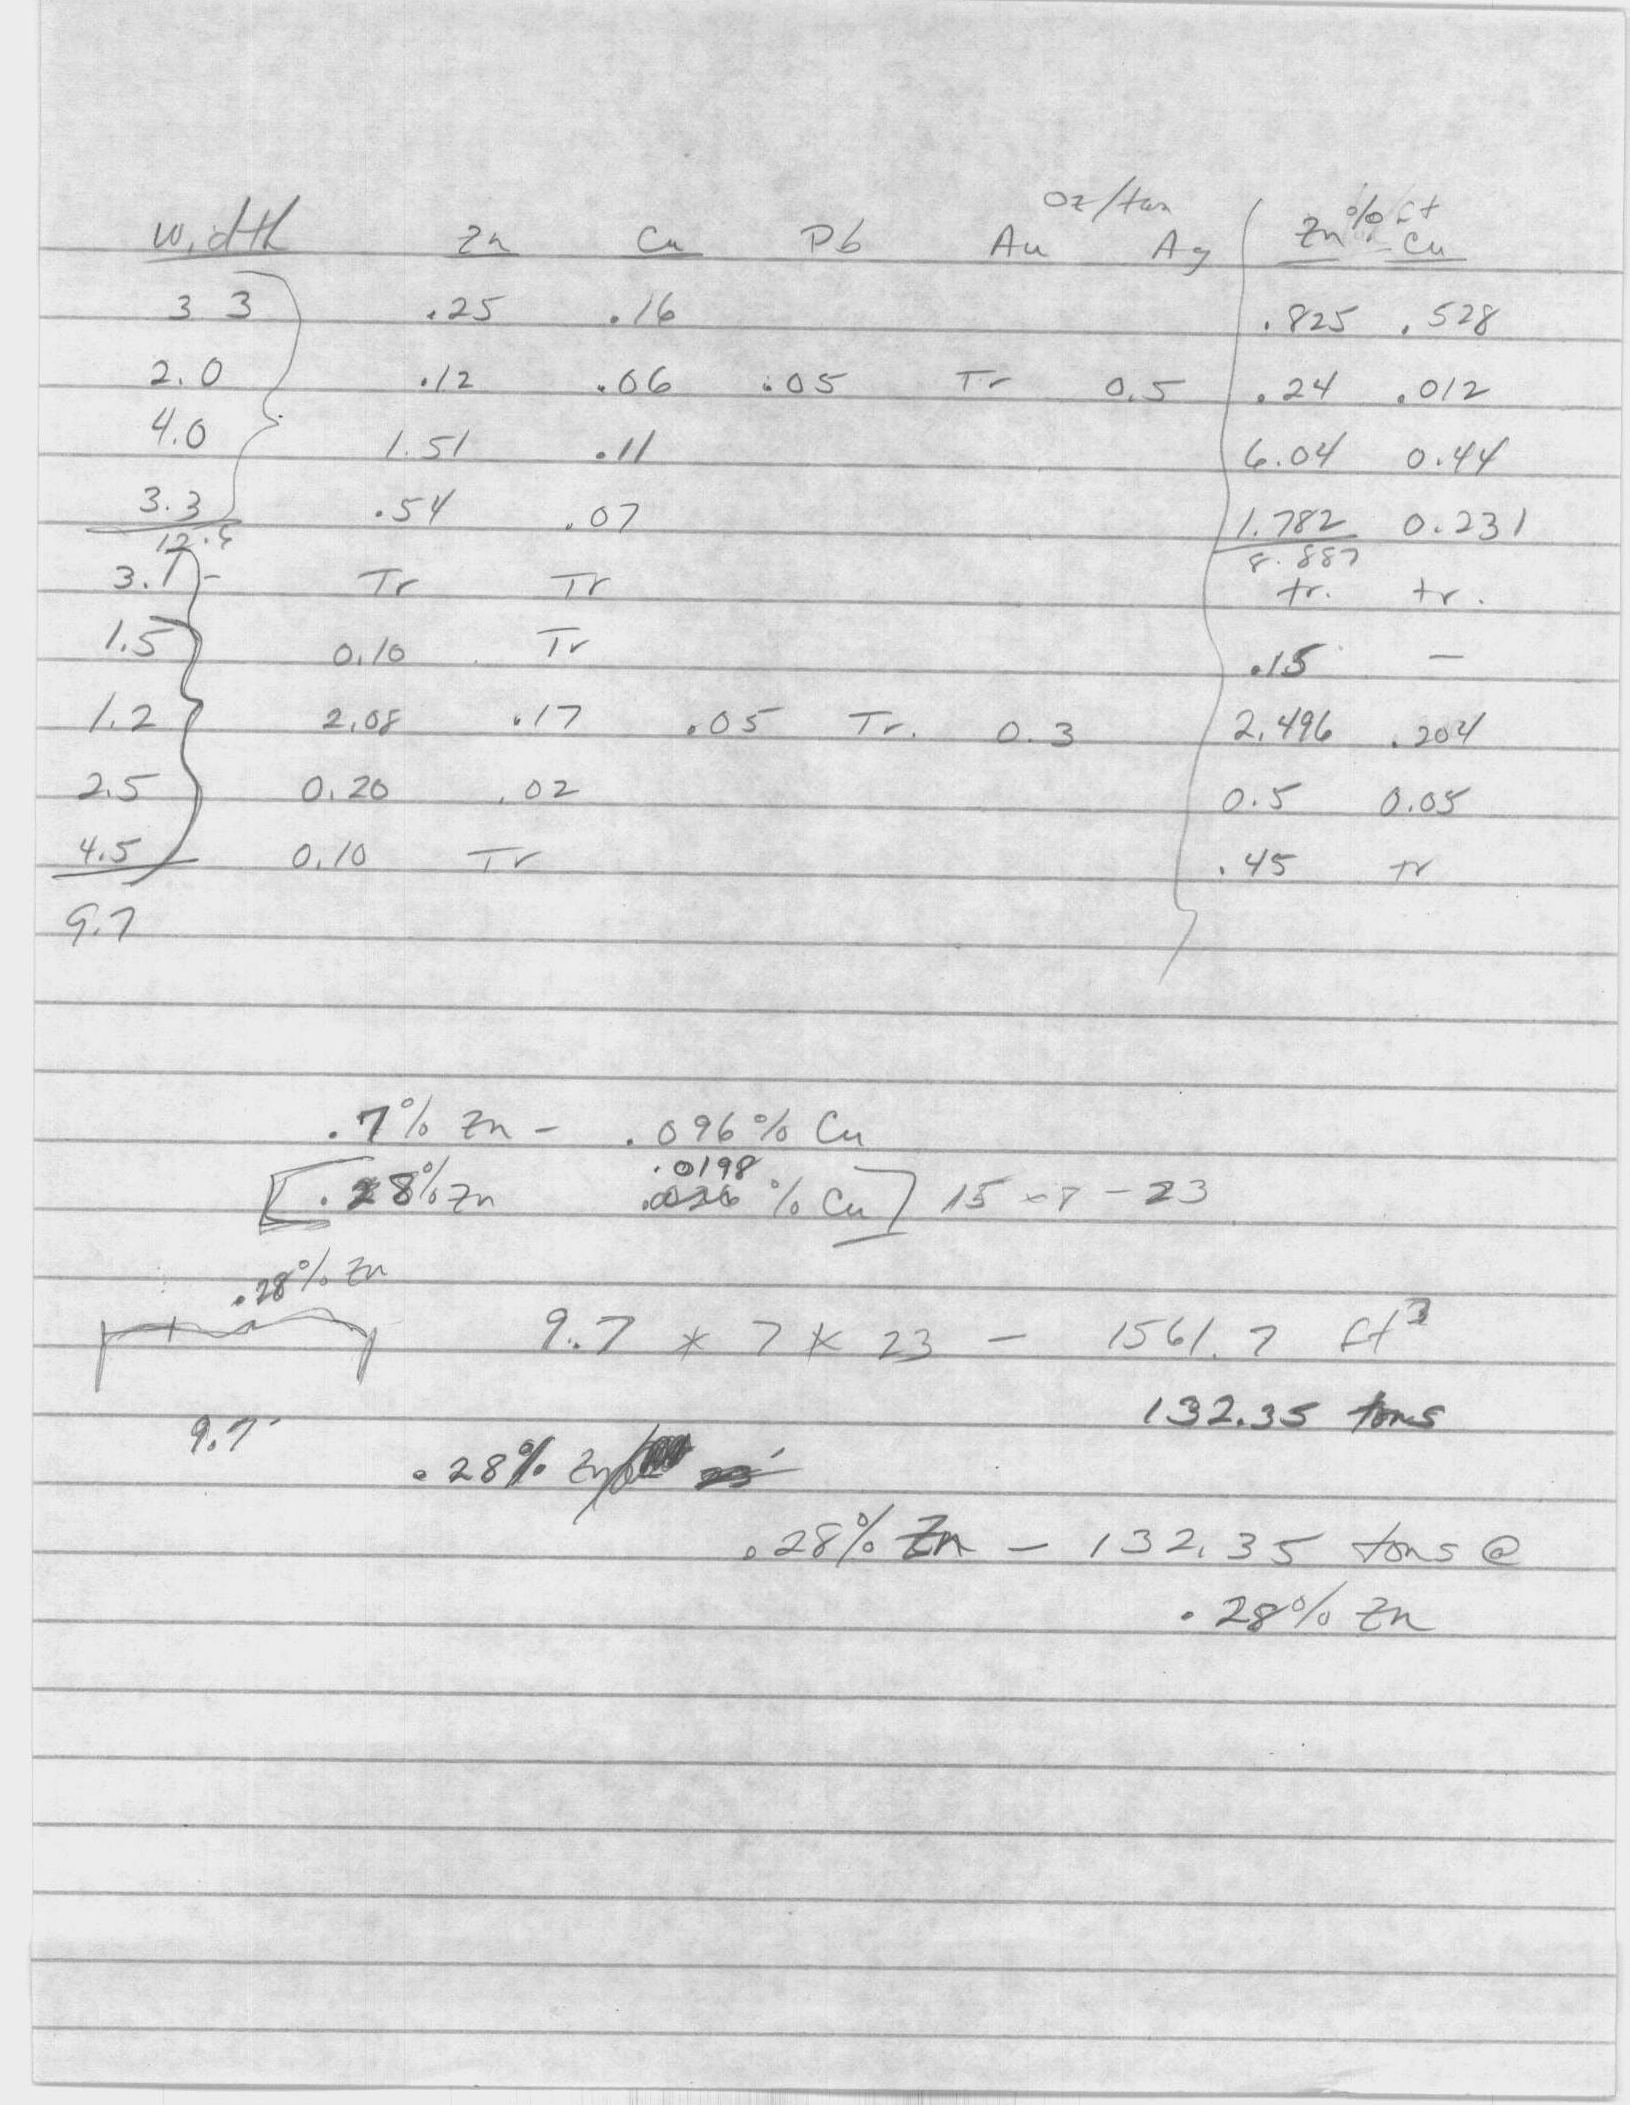 oz/ton
Width Zn Cu Pb Au Ag Zn % ft Cu
3 3 .25 .16 .825 .528
2.0 .12 .06 .05 Tr 0.5 .24 .012
4.0 1.51 .11 6.04 0.44
3.3 .54 .07 1.782 0.231
12.6 8.887
3.1 - Tr Tr tr. tr.
1.5 0.10 Tr .15 —
1.2 2.08 .17 .05 Tr. 0.3 2.496 .204
2.5 0.20 .02 0.5 0.05
4.5 0.10 Tr .45 tr
9.7
.7% Zn - .096% Cu
.0198
[.28% Zn % Cu] 15 × 7 - 23
.28% Zn
9.7 * 7 * 23 — 1561.7 ft3
132.35 tons
9.7'
.28% Zn
.28% Zn — 132.35 tons @
.28% Zn